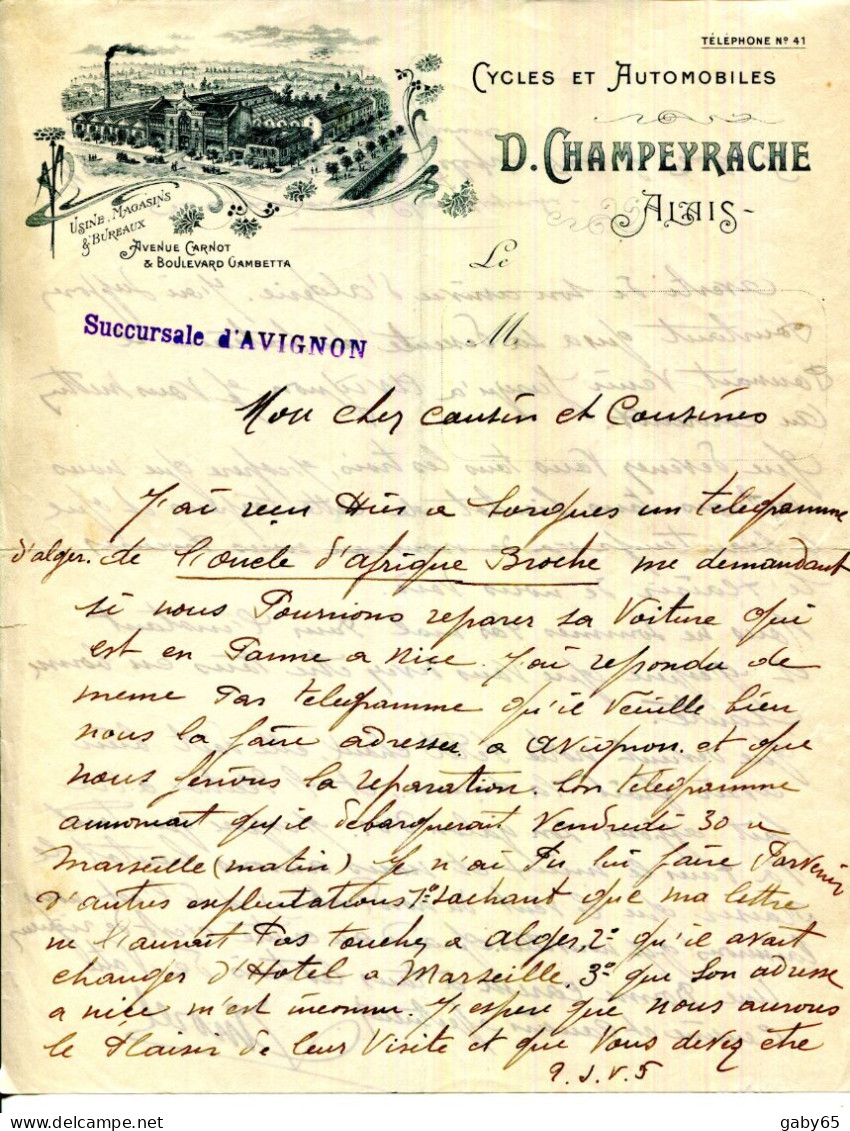 TÉLÉPHONE Nº 41
CYCLES ET AUTOMOBILES
D. CHAMPEYRACHE
ALAIS
USINE, MAGASINS
& BUREAUX
AVENUE CARNOT
& BOULEVARD GAMBETTA
Le
M
Succursale d'AVIGNON
Mon cher cousin et Cousines
J'ai reçu Hier a Sorgues un telegramme
d'alger. de l'oncle d'afrique Broche me demandant
si nous Pourrions reparer sa Voiture qui
est en Panne a nice. J'ai repondu de
meme Par telegramme qu'il veuille bien
nous la faire adresser a avignon. et que
nous ferions la reparation. Son telegramme
annoncait qu'il debarquerait Vendredi 30 a
Marseille (matin) Je n'ai Pu lui faire Parvenir
d'autres explications 1º sachant que ma lettre
ne l'aurait Pas toucher a alger, 2º qu'il avait
changer d'Hotel a Marseille. 3º que Son adresse
a nice m'est inconnu. J'espere que nous aurons
le Plaisir de leur Visite et que Vous devez etre
gaby65